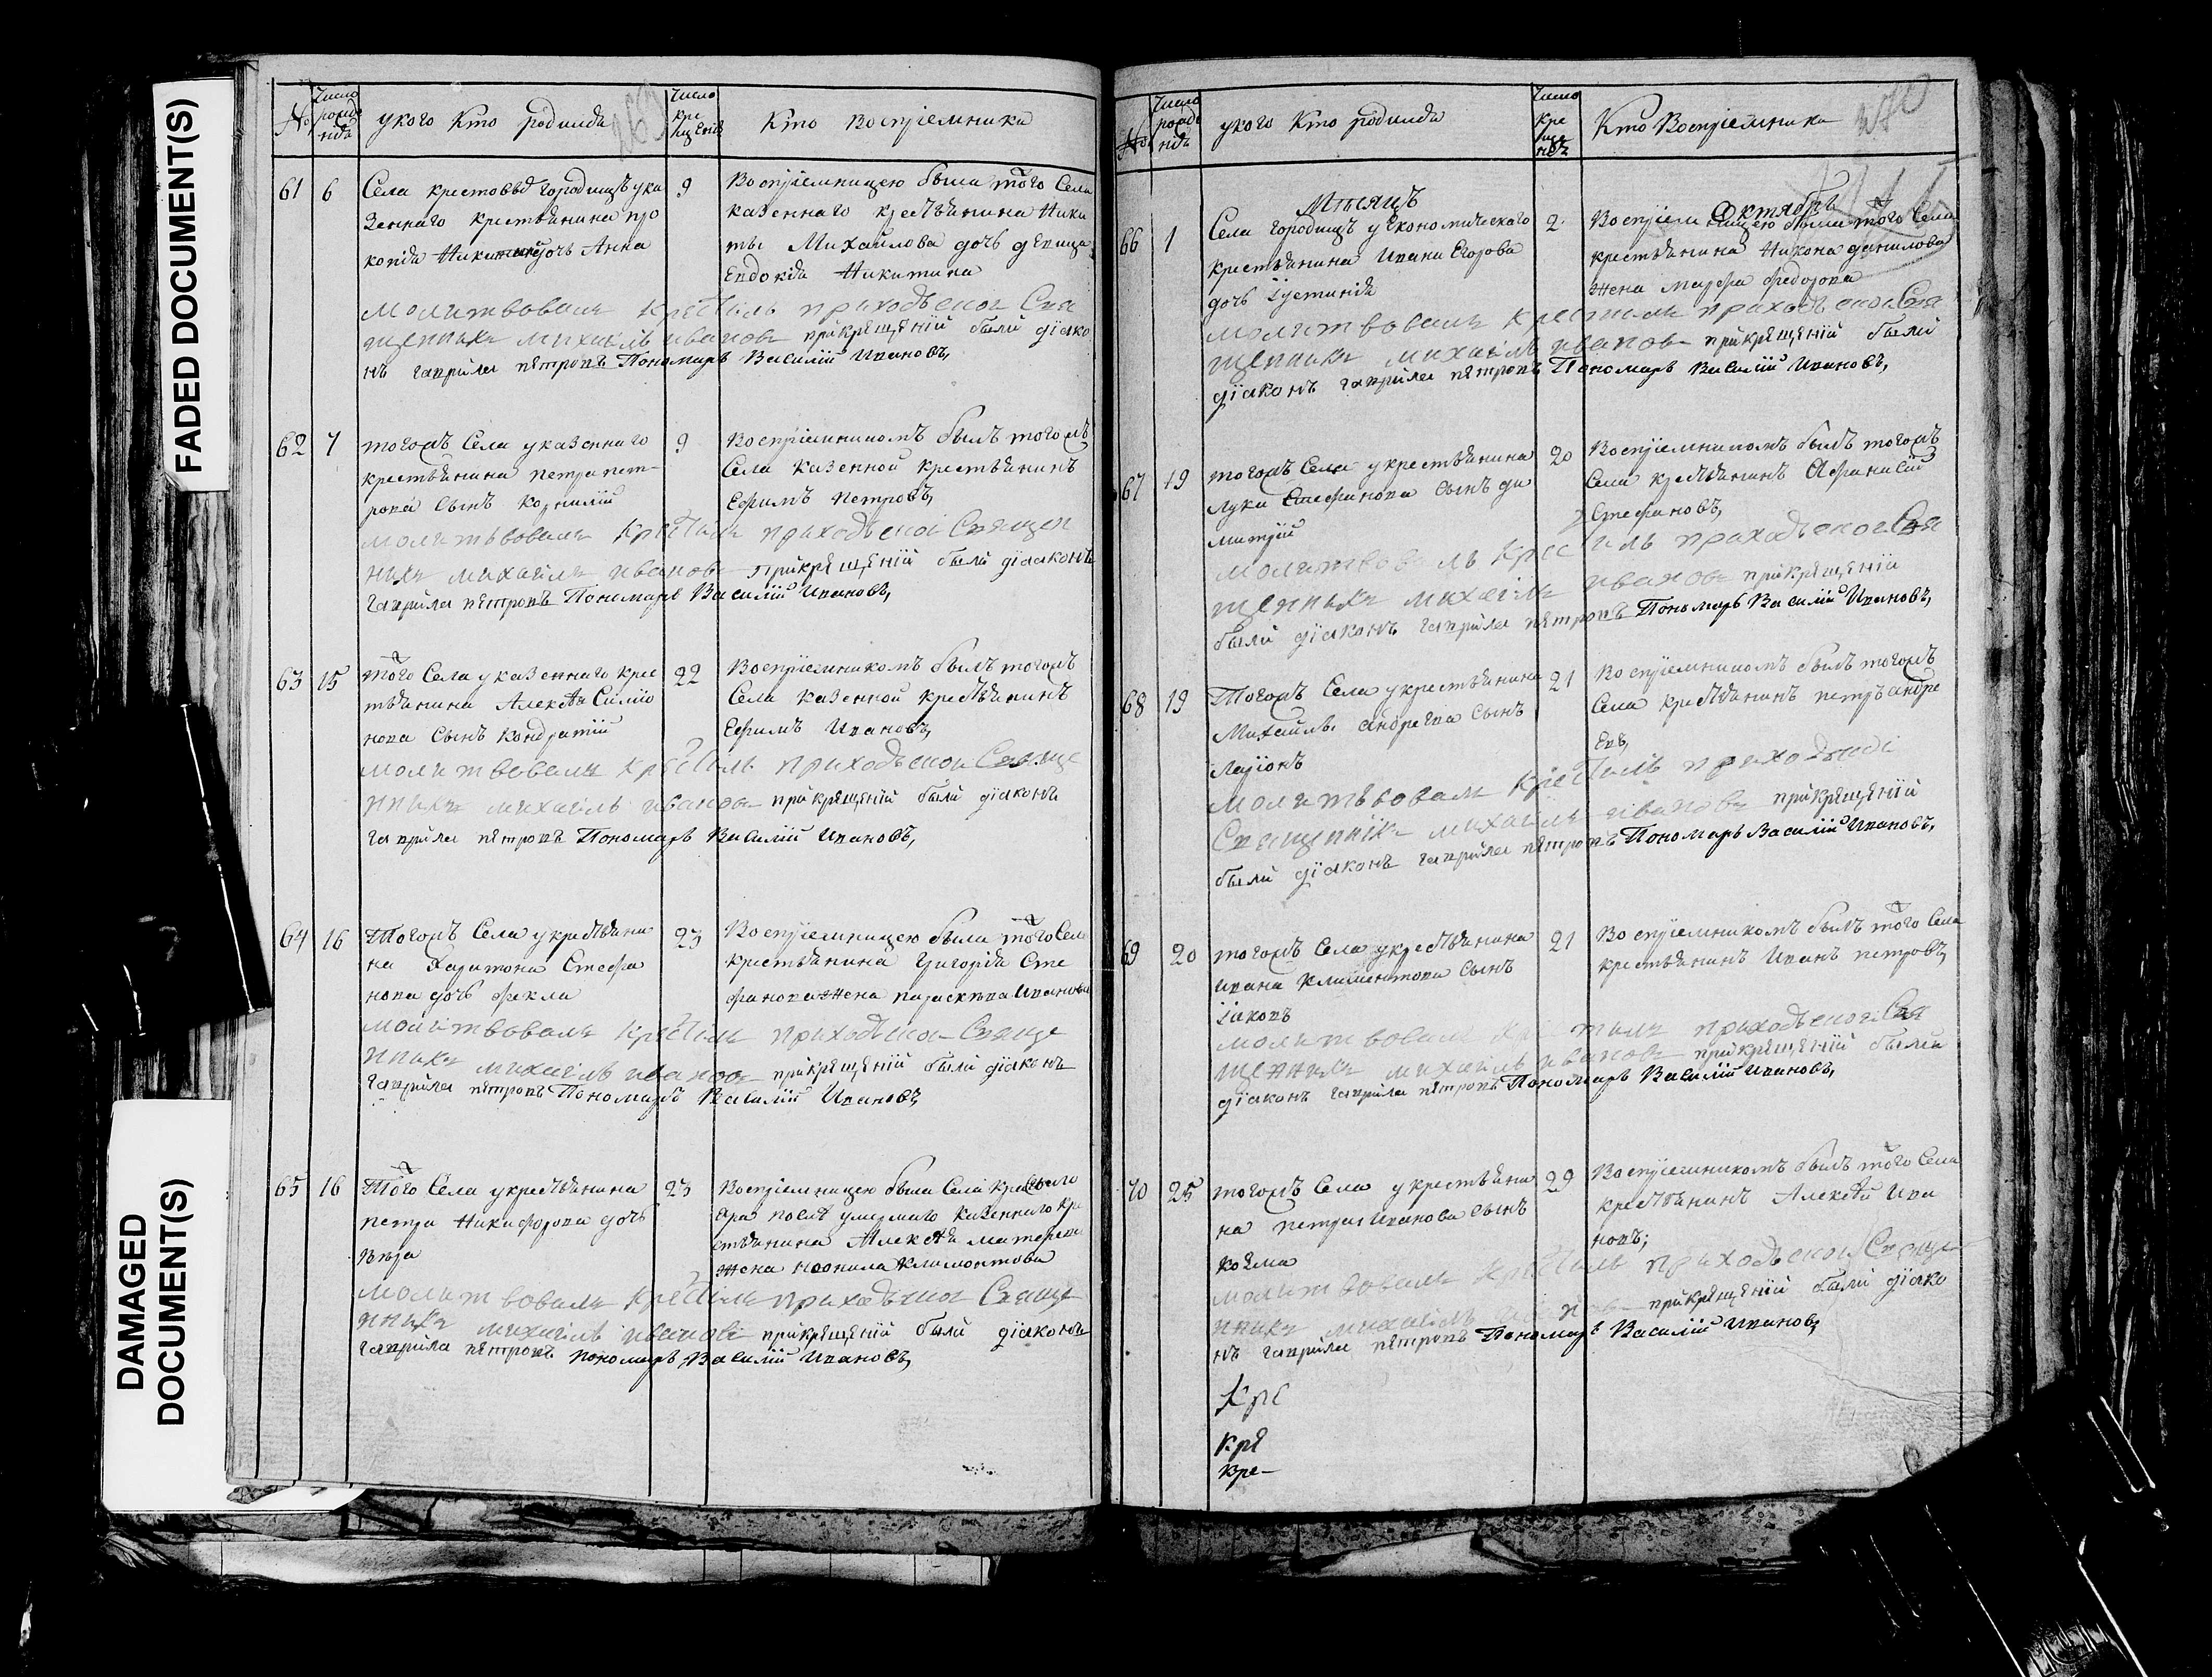 FADED DOCUMENT(S)
DAMAGED
DOCUMENT(S)
№
Число рожде нія
укого Кто родился
Число кре щеніѧ
Кто Воспріемника
61 6 Села крестовыѣ Городищъ у ка
зеннаго крестьянина про
копія Никитина дочь Анна
9
Воспріемницею была того Села
казеннаго крестьянина Ники
ты Михайлова дочь девица
Евдокія Никитина
молитвовалъ крестилъ приходской Свя
щенникъ михаилъ иванов прикрещеній были діако
нъ гаврила петровъ Пономарь Василій Ивановъ,
62 7 тогожъ Села у казеннаго
крестьянина петра пет-
рова Сынъ Корнилій
9
Воспріемникомъ былъ тогожъ
Села Казенной крестьянинъ
Ефимъ Петровъ,
молитвовалъ крестилъ приходской Священ
никъ михаилъ иванов прикрещеній были діаконъ
гаврила петровъ Пономарь Василій Ивановъ,
63 15 того Села у казеннаго крес
тьянина Алексѣя Симио
нова Сынъ Кондратій
22
Воспріемникомъ былъ тогожъ
Села казенной крестьянинъ
Ефимъ Ивановъ,
молитвовалъ крестилъ приходской Свяще
нникъ михаилъ иванов прикрещеній были діаконъ
гаврила петровъ Пономарь Василій Ивановъ,
64 16 Тогожъ Села у крестьяни
на Харитона Стефа
нова дочь фекла
23
Воспріемницею была того Села
крестьянина Григорія Сте
фанова жена параскѣва Иванова
молитвовалъ крестилъ приходской Свяще
нникъ михаилъ иванов прикрещеній были діаконъ
гаврила петровъ Пономарь Василій Ивановъ,
65 16 Того Села у крестьянина
петра Никифорова дочь
Вѣра
23
Воспріемницею была Села
умершаго Казеннаго кре
стьянина Алексѣя
жена Неонила Климонтова
молитвовалъ крестилъ приходской Свяще
нникъ михаилъ иванов прикрещеній были діаконъ
гаврила петровъ пономарь Василій Ивановъ,
№
Число рожде нія
укого Кто родился
Число Кре ще нія
Кто Воспріемника
270
Мѣсяцъ Октябрь
66 1 Села Городищъ у Економическаго
крестьянина Ивана Егорова
дочь Іустинія
2
Воспріемницею была того Села
крестьянина Никона данилова
жена Марфа федорова
молитвовалъ крестилъ приходской Свя
щенникъ михаилъ иванов прикрещеній были
діаконъ гаврила петровъ Пономарь Василій Ивановъ,
67 19 тогожъ Села у крестьянина
луки Стефанова Сынъ ди
митрій
20
Воспріемникомъ былъ тогожъ
Села крестьянинъ Афанасій
Стефановъ,
молитвовалъ крестилъ приходской Свя
щенникъ михаилъ иванов прикрещеній
были діаконъ гаврила петровъ Пономарь Василій Ивановъ,
68 19 Тогожъ Села у крестьянина
Михайлы андреева Сынъ
ларіонъ
21
Воспріемникомъ былъ тогожъ
Села крестьянинъ петръ андре
евъ,
молитвовалъ крестилъ приходской
Священникъ михаилъ ивановъ прикрещеній
были діаконъ гаврила петровъ Пономарь Василій Ивановъ,
69 20 тогожъ Села у крестьянина
ивана Климентова Сынъ
Іаковъ
21
Воспріемникомъ былъ того Села
крестьянинъ Иванъ петровъ,
молитвовалъ крестилъ приходской Свя
щенникъ михаилъ иванов прикрещеній были
діаконъ гаврила петровъ Пономарь Василій Ивановъ,
70 25 тогожъ Села у крестьяни
на петра Иванова Сынъ
козма
29
Воспріемникомъ былъ того Села
крестьянинъ Алексѣй Ива
новъ;
молитвовалъ крестилъ приходской Свяще
нникъ михаилъ прикрещеній были діако
нъ гаврила петровъ Пономарь Василій Ивановъ,
Кре
Кре
кре-